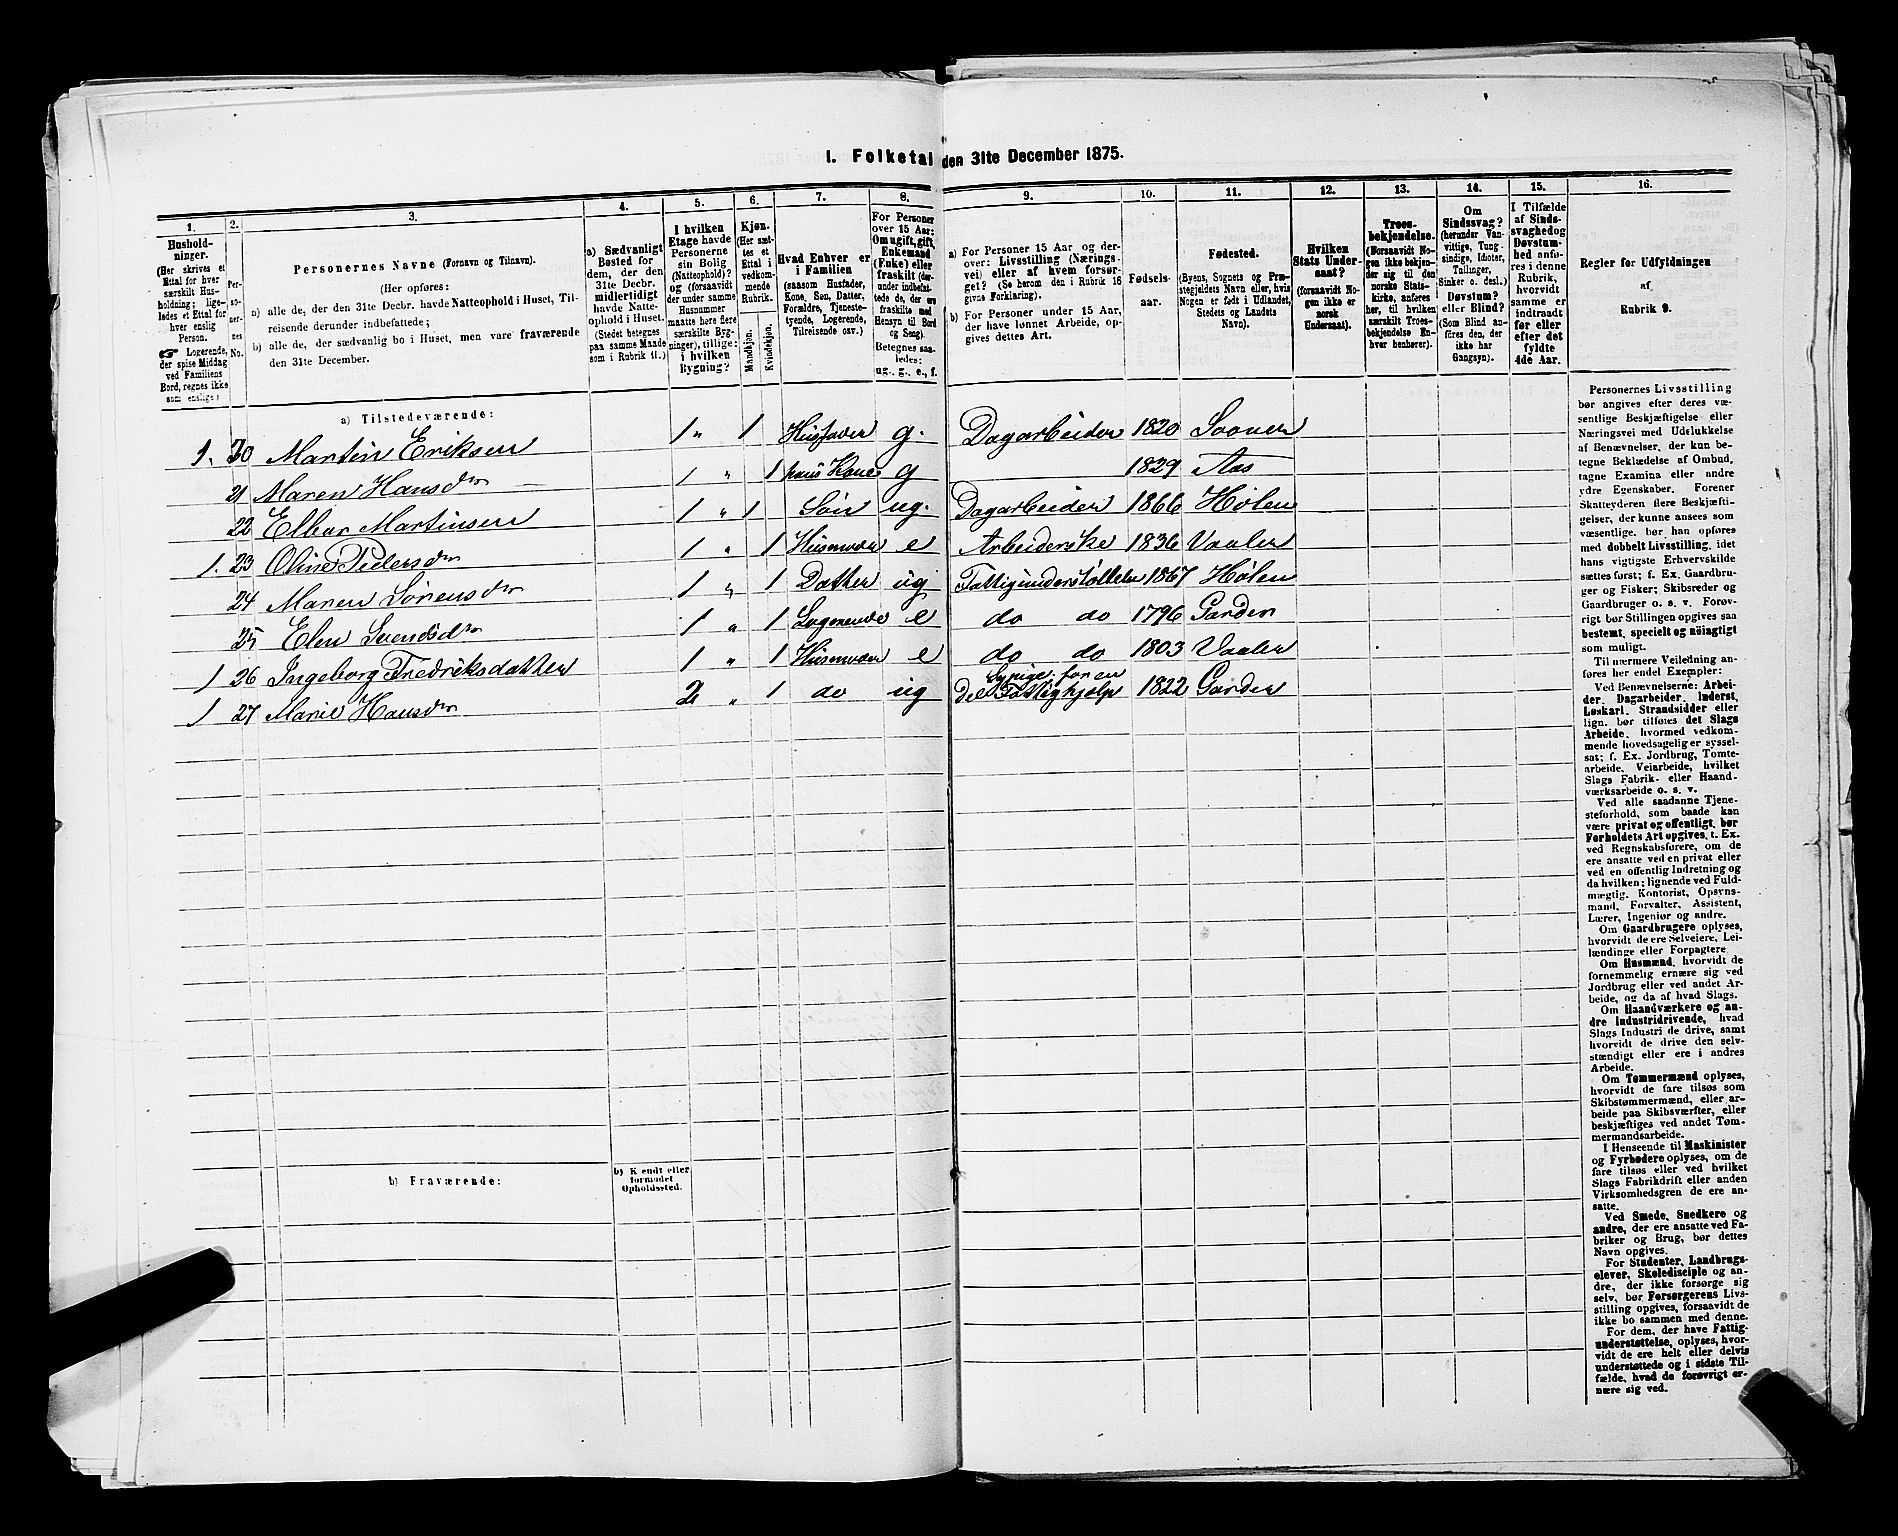 I. Folketal den 31te December 1875.
1.
Hushold-
ninger.
(Her skrives et
Ettal for hver
særskilt Hus-
holdning; lige-
ledes et Ettal for
hver enslig
Person.
☞ Logerende,
der spise Middag
ved Familiens
Bord, regnes ikke
som enslige.)
2.
Per-
so-
ner-
nes
No.
3.
Personernes Navne (Fornavn og Tilnavn).
(Her opføres:
a) alle de, der den 31te Decbr. havde Natteophold i Huset, Til-
reisende derunder indbefattede;
b) alle de, der sædvanlig bo i Huset, men vare fraværende
den 31te December.
4.
a) Sædvanligt
Bosted for
dem, der den
31te Decbr.
midlertidigt
havde Natte-
ophold i Huset.
(Stedet betegnes
paa samme Maade
som i Rubrik 11.)
5.
I hvilken
Etage havde
Personerne
sin Bolig
(Natteophold)?
og (forsaavidt
der under samme
Husnummer
maatte høre flere
særskilte Byg-
ninger), tillige:
i hvilken
Bygning?
6.
Kjøn.
(Her sæt-
tes et
Ettal i
vedkom-
mende
Rubrik.
Mandkjøn.
Kvindekjøn.
7.
Hvad Enhver er
i Familien
(saasom Husfader,
Kone, Søn, Datter,
Forældre, Tjeneste-
tyende, Logerende,
Tilreisende osv.)
8.
For Personer
over 15 Aar:
Om ugift, gift,
Enkemand
(Enke) eller
fraskilt (der-
under indbefat-
tede de, der ere
fraskilte med
Hensyn til Bord
og Seng).
Betegnes saa-
ledes:
ug., g., e., f.
9.
a) For Personer 15 Aar og der-
over: Livsstilling (Nærings-
vei) eller af hvem forsør-
get? (Se herom den i Rubrik 16
givne Forklaring).
b) For Personer under 15 Aar,
der have lønnet Arbeide, op-
gives dettes Art.
10.
Fødsels-
aar.
11.
Fødested.
(Byens, Sognets og Præ-
stegjeldets Navn eller, hvis
Nogen er født i Udlandet,
Stedets og Landets
Navn).
12.
Hvilken
Stats Under-
saat?
(forsaavidt No-
gen ikke er
norsk
Undersaat).
13.
Troes-
bekjendelse.
(Forsaavidt No-
gen ikke bekjen-
der sig til den
norske Stats-
kirke, anføres
her, til hvilken
særskilt Troes-
bekjendelse En-
hver henhører).
14.
Om
Sindssvag?
(herunder Van-
vittige, Tung-
sindige, Idioter,
Tullinger,
Sinker o. desl.)
Døvstum?
eller Blind?
(Som Blind an-
føres den, der
ikke har
Gangsyn).
15.
I Tilfælde
af Sinds-
svaghed og
Døvstum-
hed anfø-
res i denne
Rubrik,
hvorvidt
samme er
indtraadt
før eller
efter det
fyldte
4de Aar.
16.
Regler for Udfyldningen
af
Rubrik 9.
a) Tilstedeværende:
1. 20 Martin Eriksen 1 " 1 Husfader g. Dagarbeider 1820 Soover
21 Maren Hansdr 1 " 1 hans Kone g 1829 Aas
22 Elbar Martinsen 1 " 1 Søn ug. Dagarbeider 1866 Hølen
1. 23 Oline Pedersdr 1 " 1 Husmoder e Arbeiderske 1836 Vaaler
24 Maren Sørensdr 1 " 1 Datter ug Fattigunderstøttelse 1867 Hølen
25 Elen Svendsdr 1 " 1 Logerende e do do 1796 Garder
1 26 Ingeborg Fredriksdatter 1 " 1 Husmoder e do do 1803 Vaaler
1 27 Marie Hansdr 2 " 1 do ug Sypige. for en
Del Fattighjelp 1822 Garder
b) Fraværende:
b) Kjendt eller
formodet
Opholdssted.
Personernes Livsstilling
bør angives efter deres væ-
sentlige Beskjæftigelse eller
Næringsvei med Udelukkelse
af Benævnelser, der kun be-
tegne Beklædelse af Ombud,
tagne Examina eller andre
ydre Egenskaber. Forener
Skatteyderen flere Beskjæfti-
gelser, der kunne ansees som
væsentlige, bør han opføres
med dobbelt Livsstilling, idet
hans vigtigste Erhvervskilde
sættes først; f. Ex. Gaardbru-
ger og Fisker; Skibsreder og
Gaardbruger o. s. v. Forøv-
rigt bør Stillingen opgives saa
bestemt, specielt og nøiagtigt
som muligt.
Til nærmere Veiledning an-
føres her endel Exempler:
Ved Benævnelserne: Arbei-
der, Dagarbeider, Inderst,
Løskarl, Strandsidder eller
lign. bør tilføies det Slags
Arbeide, hvormed vedkom-
mende hovedsagelig er syssel-
sat; f. Ex. Jordbrug, Tomte-
arbeide, Veiarbeide, hvilket
Slags Fabrik- eller Haand-
værksarbeide o. s. v.
Ved alle saadanne Tjene-
steforhold, som baade kan
være privat og offentligt, bør
Forholdets Art opgives, t. Ex.
ved Regnskabsførere, om de
ere ansatte ved en privat eller
ved en offentlig Indretning og
da hvilken; lignende ved Fuld-
mægtig, Kontorist, Opsyns-
mand, Forvalter, Assistent,
Lærer, Ingeniør og andre.
Om Gaardbrugere oplyses,
hvorvidt de ere Selveiere, Lei-
lændinge eller Forpagtere.
Om Husmænd, hvorvidt de
fornemmelig ernære sig ved
Jordbrug eller ved andet Ar-
beide, og da af hvad Slags.
Om Haandværkere og an-
dre Industridrivende, hvad
Slags Industri de drive, samt
hvorvidt de drive den selv-
stændigt eller ere i andres
Arbeide.
Om Tømmermænd oplyses,
hvorvidt de fare tilsøs som
Skibstømmermænd, eller ar-
beide paa Skibsværfter, eller
beskjæftiges ved andet Tøm-
mermandsarbeide.
I Henseende til Maskinister
og Fyrbødere oplyses, om de
fare tilsøs eller ved hvilket
Slags Fabrikdrift eller anden
Virksomhedsgren de ere an-
satte.
Ved Smede, Snedkere og
andre, der ere ansatte ved Fa-
briker og Brug, bør dettes
Navn opgives.
For Studenter, Landbrugs-
elever, Skoledisciple og an-
dre, der ikke forsørge sig
selv, bør Forsørgerens Livs-
stilling opgives, forsaavidt de
ikke bo sammen med denne.
For dem, der have Fattig-
understøttelse, oplyses, hvor-
vidt de ere helt eller delvis
understøttede og i sidste Til-
fælde, hvad de forøvrigt er-
nære sig ved.